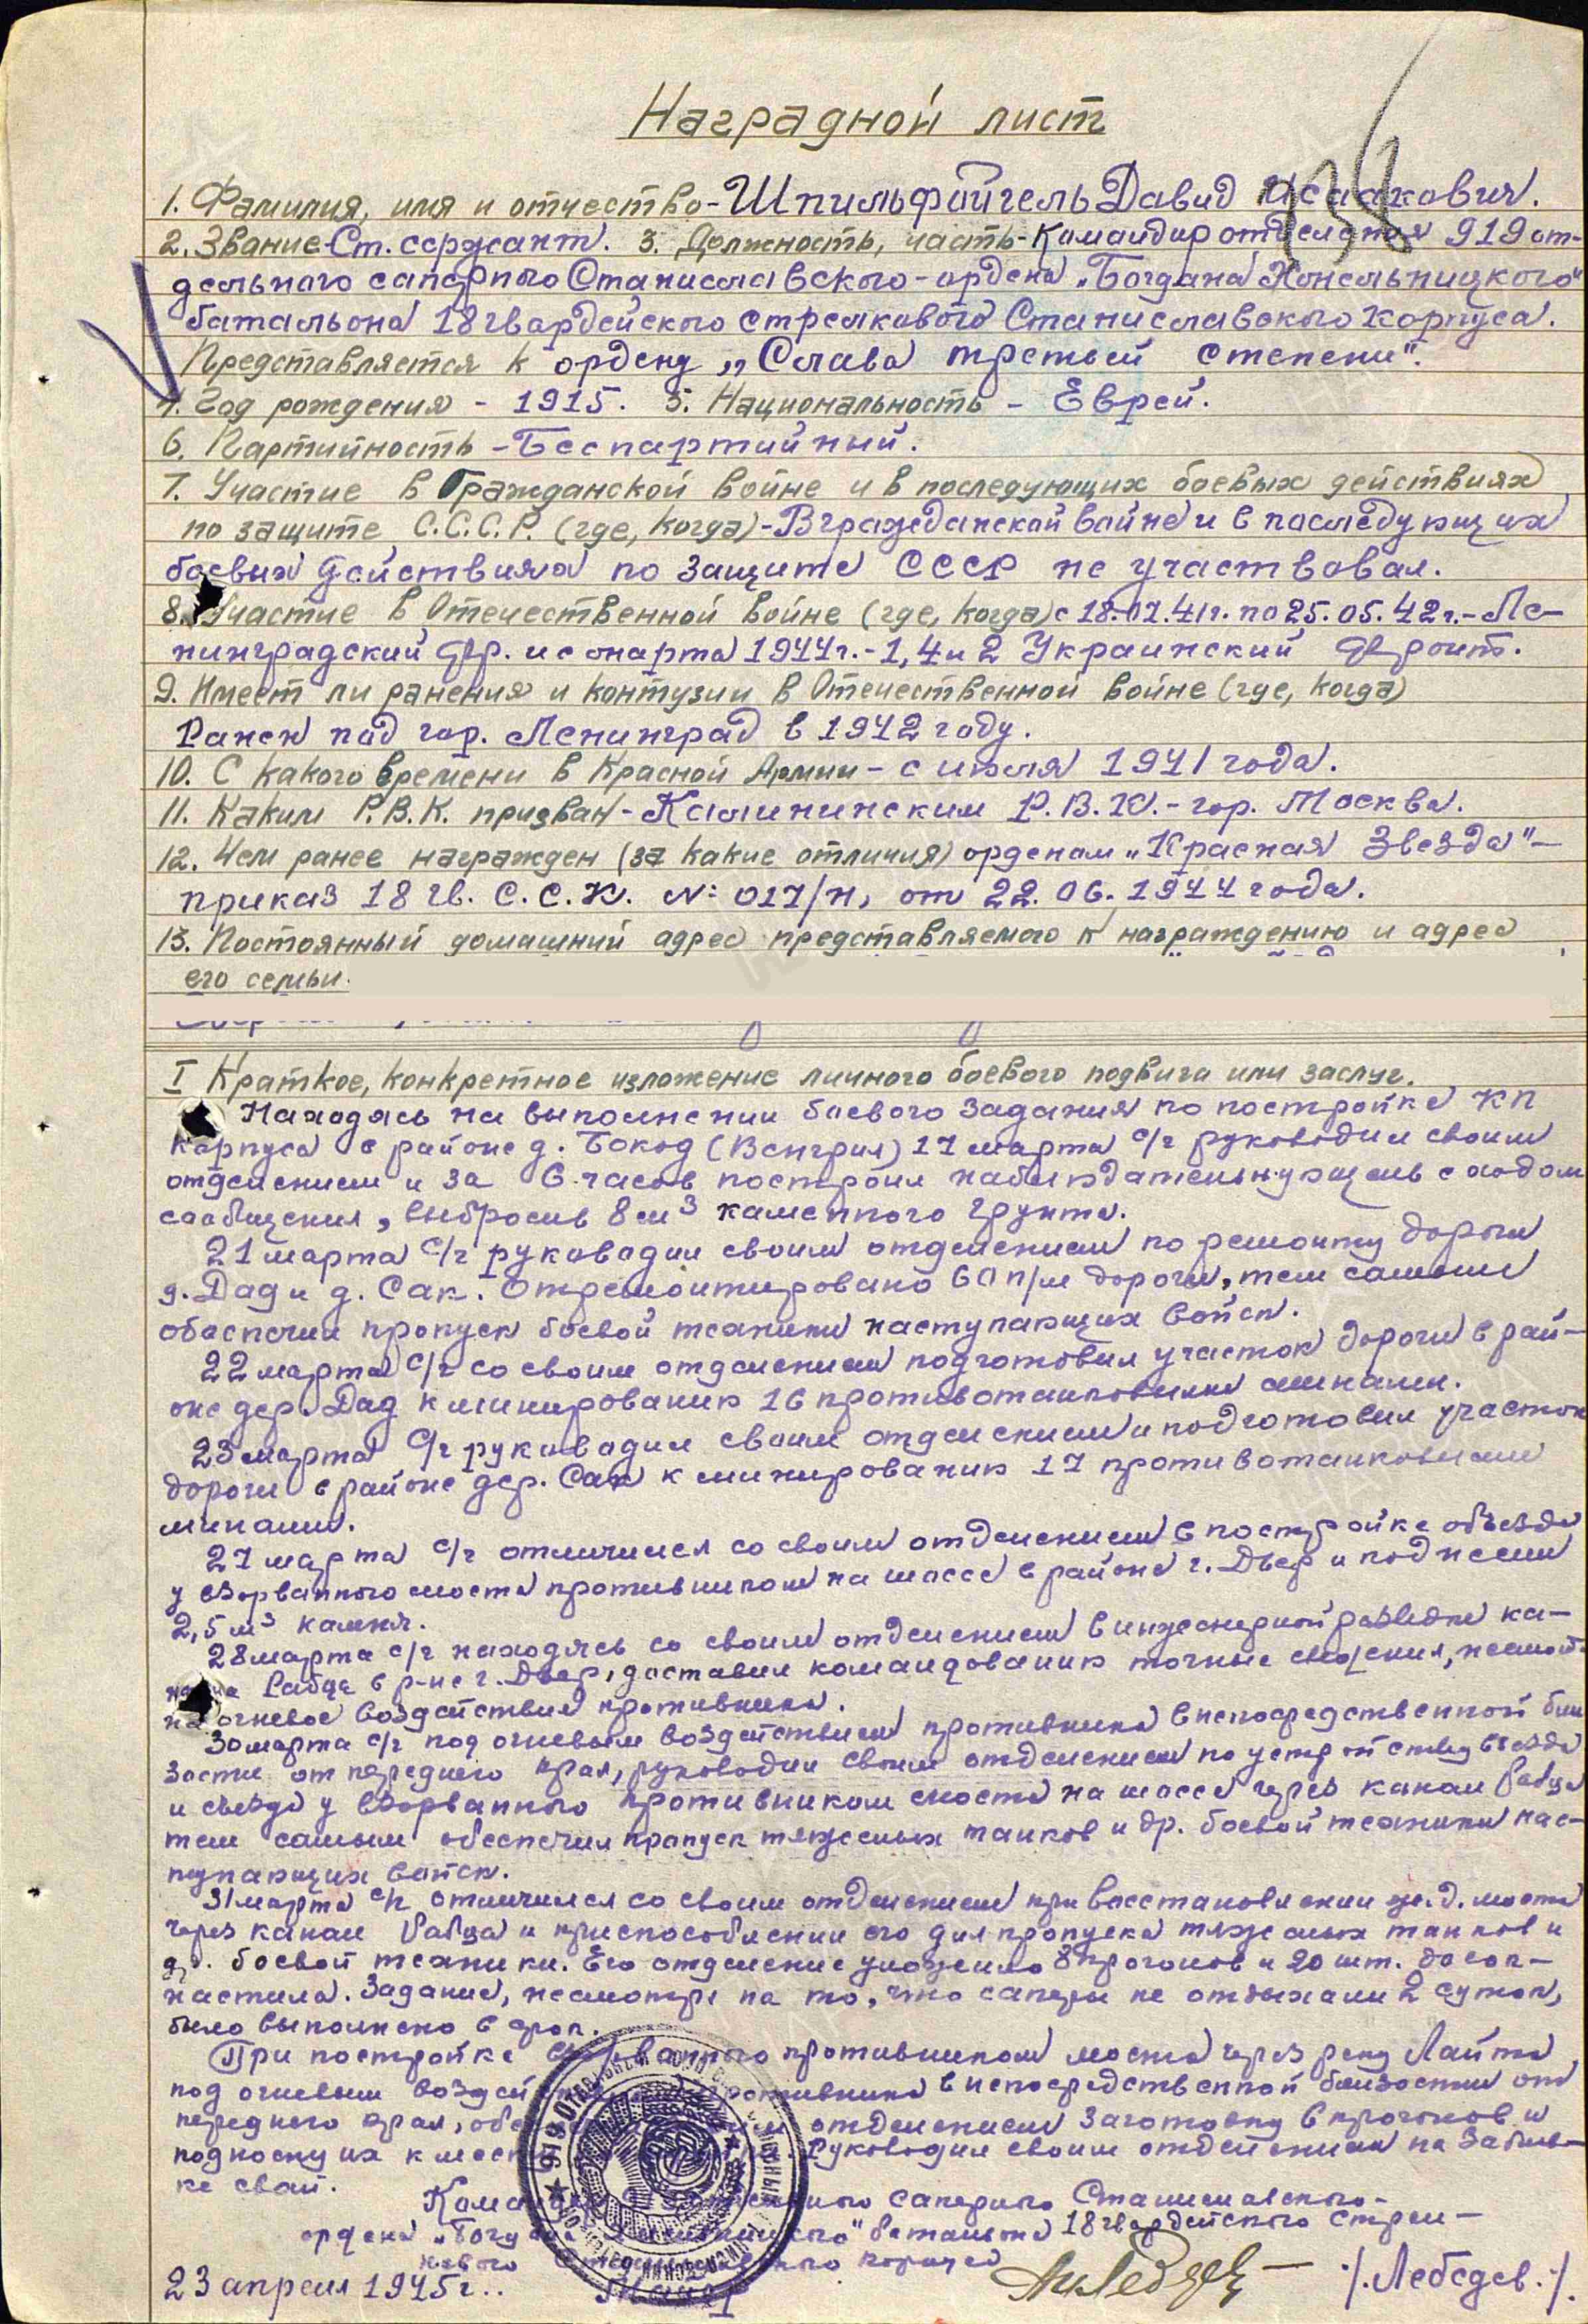 Наградной лист
138
1. Фамилия, имя и отчество - Шпильфойгель Давид Исаакович.
2. Звание - Ст. сержант. 3. Должность, часть - Командир отделения 919 от-
дельного саперного Станиславского - ордена „Богдана Хмельницкого"
батальона 18 гвардейского стрелкового Станиславского корпуса.
Представляется к ордену „Слава третьей степени".
4. Год рождения - 1915. 5. Национальность - Еврей.
6. Партийность - Беспартийный.
7. Участие в Гражданской войне и в последующих боевых действиях
по защите С.С.С.Р. (где, когда) - В гражданской войне и в последующих
боевых действиях по защите СССР не участвовал.
8. Участие в Отечественной войне (где, когда) с 18.07.41г. по 25.05.42г. - Ле-
нинградский фр. и с марта 1944г. - 1, 4 и 2 Украинский фронт.
9. Имеет ли ранения и контузии в Отечественной войне (где, когда)
Ранен под гор. Ленинград в 1942 году.
10. С какого времени в Красной Армии - с июля 1941 года.
11. Каким Р.В.К. призван - Калининским Р.В.К. - гор. Москва.
12. Чем ранее награжден (за какие отличия) орденом „Красная Звезда" -
приказ 18 гв. С.С.К. №: 017/н, от 22.06.1944 года.
13. Постоянный домашний адрес представляемого к награждению и адрес
его семьи.
I Краткое, конкретное изложение личного боевого подвига или заслуг.
Находясь на выполнении боевого задания по постройке КП
корпуса в районе д. Бокод (Венгрия) 17 марта с/г руководил своим
отделением и за 6 часов построил наблюдательную щель с ходом
сообщения, выбросив 8 м³ каменного грунта.
21 марта с/г руководил своим отделением по ремонту дороги
д. Дад и д. Сак. Отремонтировано 60 п/м дороги, тем самым
обеспечил пропуск боевой техники наступающих войск.
22 марта с/г со своим отделением подготовил участок дороги в рай-
оне дер. Дад к минированию 16 противотанковыми минами.
23 марта с/г руководил своим отделением и подготовил участок
дороги в районе дер. Сак к минированию 17 противотанковыми
минами.
27 марта с/г отличился со своим отделением в постройке объезда
у взорванного моста противником на шоссе в районе г. Дьер и поднесли
2,5 м³ камня.
28 марта с/г находясь со своим отделением в инженерной разведке ка-
нала Рабца в р-не г. Дьер, доставил командованию точные сведения, несмотря
на огневое воздействие противника.
30 марта с/г под огневым воздействием противника в непосредственной бли
зости от переднего края, руководил своим отделением по устройству въезда
и съезда у взорванного противником моста на шоссе через канал Рабца
тем самым обеспечил пропуск тяжелых танков и др. боевой техники нас-
тупающих войск.
31 марта с/г отличился со своим отделением при восстановлении ж.д. моста
через канал Рабца и приспособлении его для пропуска тяжелых танков и
др. боевой техники. Его отделение уложило 8 прогонов и 20 шт. досок -
настила. Задание, несмотря на то, что саперы не отдыхали 2 суток,
было выполнено в срок.
При постройке взорванного противником моста через реку Лайта,
под огневым воздействием противника в непосредственной близости от
переднего края, отделением заготовку 6 прогонов и
подноску их к месту Руководил своим отделением на забив-
ке свай.
Командир отдельного саперного Станиславского -
ордена „Богдана Хмельницкого" батальона 18 гвардейского стрел-
кового Станиславского корпуса
23 апреля 1945г. Майор /. Лебедев. /.